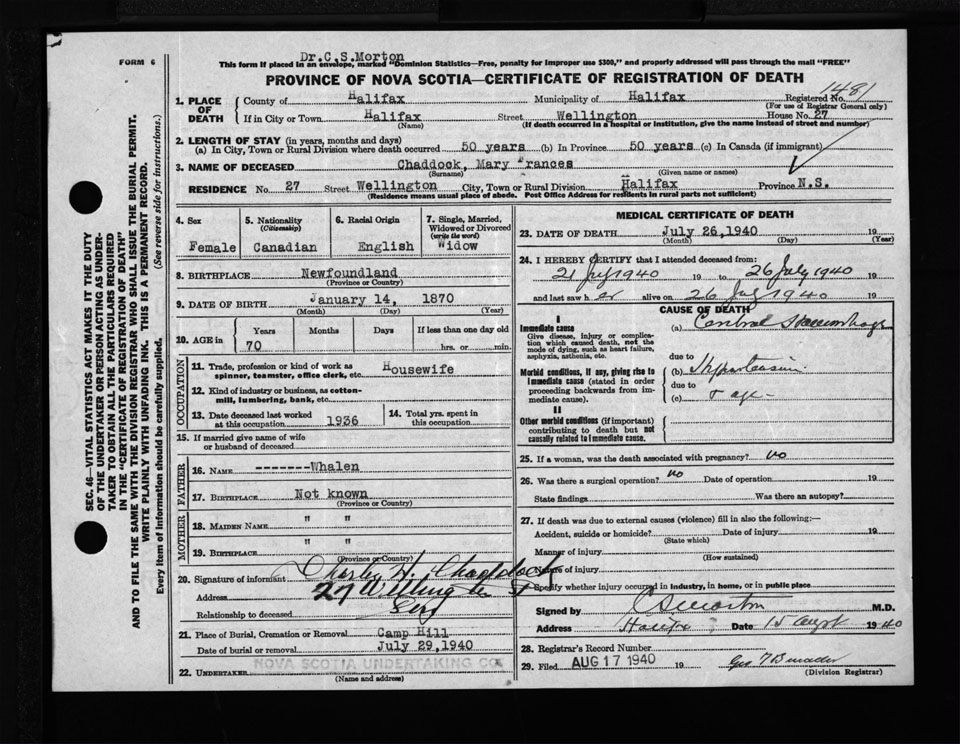 FORM 6
Dr. C.S.Morton
This form if placed in an envelope, marked "Dominion Statistics—Free, penalty for improper use $300," and properly addressed will pass through the mail "FREE"
PROVINCE OF NOVA SCOTIA—CERTIFICATE OF REGISTRATION OF DEATH
SEC. 46—VITAL STATISTICS ACT MAKES IT THE DUTY
OF THE UNDERTAKER OR PERSON ACTING AS UNDER-
TAKER TO OBTAIN ALL THE PARTICULARS REQUIRED
IN THE "CERTIFICATE OF REGISTRATION OF DEATH"
AND TO FILE THE SAME WITH THE DIVISION REGISTRAR WHO SHALL ISSUE THE BURIAL PERMIT.
WRITE PLAINLY WITH UNFADING INK. THIS IS A PERMANENT RECORD.
Every item of information should be carefully supplied. (See reverse side for instructions.)
1. PLACE OF DEATH County of Halifax Municipality of Halifax Registered No. 1481
(For use of Registrar General only)
If in City or Town Halifax Street Wellington House No. 27
(Name) (If death occurred in a hospital or institution, give the name instead of street and number)
2. LENGTH OF STAY (in years, months and days)
(a) In City, Town or Rural Division where death occurred 50 years (b) In Province 50 years (c) In Canada (if immigrant)
3. NAME OF DECEASED Chaddock, Mary Frances
(Surname) (Given name or names)
RESIDENCE No. 27 Street Wellington City, Town or Rural Division Halifax Province N.S.
(Residence means usual place of abode. Post Office Address for residents in rural parts not sufficient)
4. Sex 5. Nationality (Citizenship) 6. Racial Origin 7. Single, Married, Widowed or Divorced (write the word)
Female Canadian English Widow
8. BIRTHPLACE Newfoundland
(Province or Country)
9. DATE OF BIRTH January 14, 1870
(Month) (Day) (Year)
10. AGE in Years Months Days If less than one day old
70 hrs. or min.
OCCUPATION
11. Trade, profession or kind of work as spinner, teamster, office clerk, etc. Housewife
12. Kind of industry or business, as cotton-mill, lumbering, bank, etc.
13. Date deceased last worked at this occupation 1936 14. Total yrs. spent in this occupation
15. If married give name of wife or husband of deceased
FATHER
16. NAME -------Whalen
17. BIRTHPLACE Not known
(Province or Country)
MOTHER
18. MAIDEN NAME " "
19. BIRTHPLACE " "
(Province or Country)
20. Signature of informant Charles H. Chaddock
Address 27 Wellington St
Relationship to deceased
21. Place of Burial, Cremation or Removal Camp Hill
Date of burial or removal July 29,1940
NOVA SCOTIA UNDERTAKING CO.
22. UNDERTAKER
(Name and address)
MEDICAL CERTIFICATE OF DEATH
23. DATE OF DEATH July 26,1940 19
(Month) (Day) (Year)
24. I HEREBY CERTIFY that I attended deceased from:
21 July 1940 19 to 26 July 1940 19
and last saw h er alive on 26 July 1940 19
CAUSE OF DEATH
I
Immediate cause
Give disease, injury or complication which caused death, not the mode of dying, such as heart failure, asphyxia, asthenia, etc.
(a)
due to
Morbid conditions, if any, giving rise to immediate cause (stated in order proceeding backwards from immediate cause).
(b) Hypertension
due to
(c) + age
II
Other morbid conditions (if important) contributing to death but not causally related to immediate cause.
25. If a woman, was the death associated with pregnancy? no
26. Was there a surgical operation? no Date of operation 19
State findings Was there an autopsy?
27. If death was due to external causes (violence) fill in also the following:—
Accident, suicide or homicide? Date of injury 19
(State which)
Manner of injury
(How sustained)
Nature of injury
Specify whether injury occurred in industry, in home, or in public place
Signed by CSMorton M.D.
Address Halifax Date 15 August 1940
28. Registrar's Record Number
29. Filed AUG 17 1940 19
(Division Registrar)